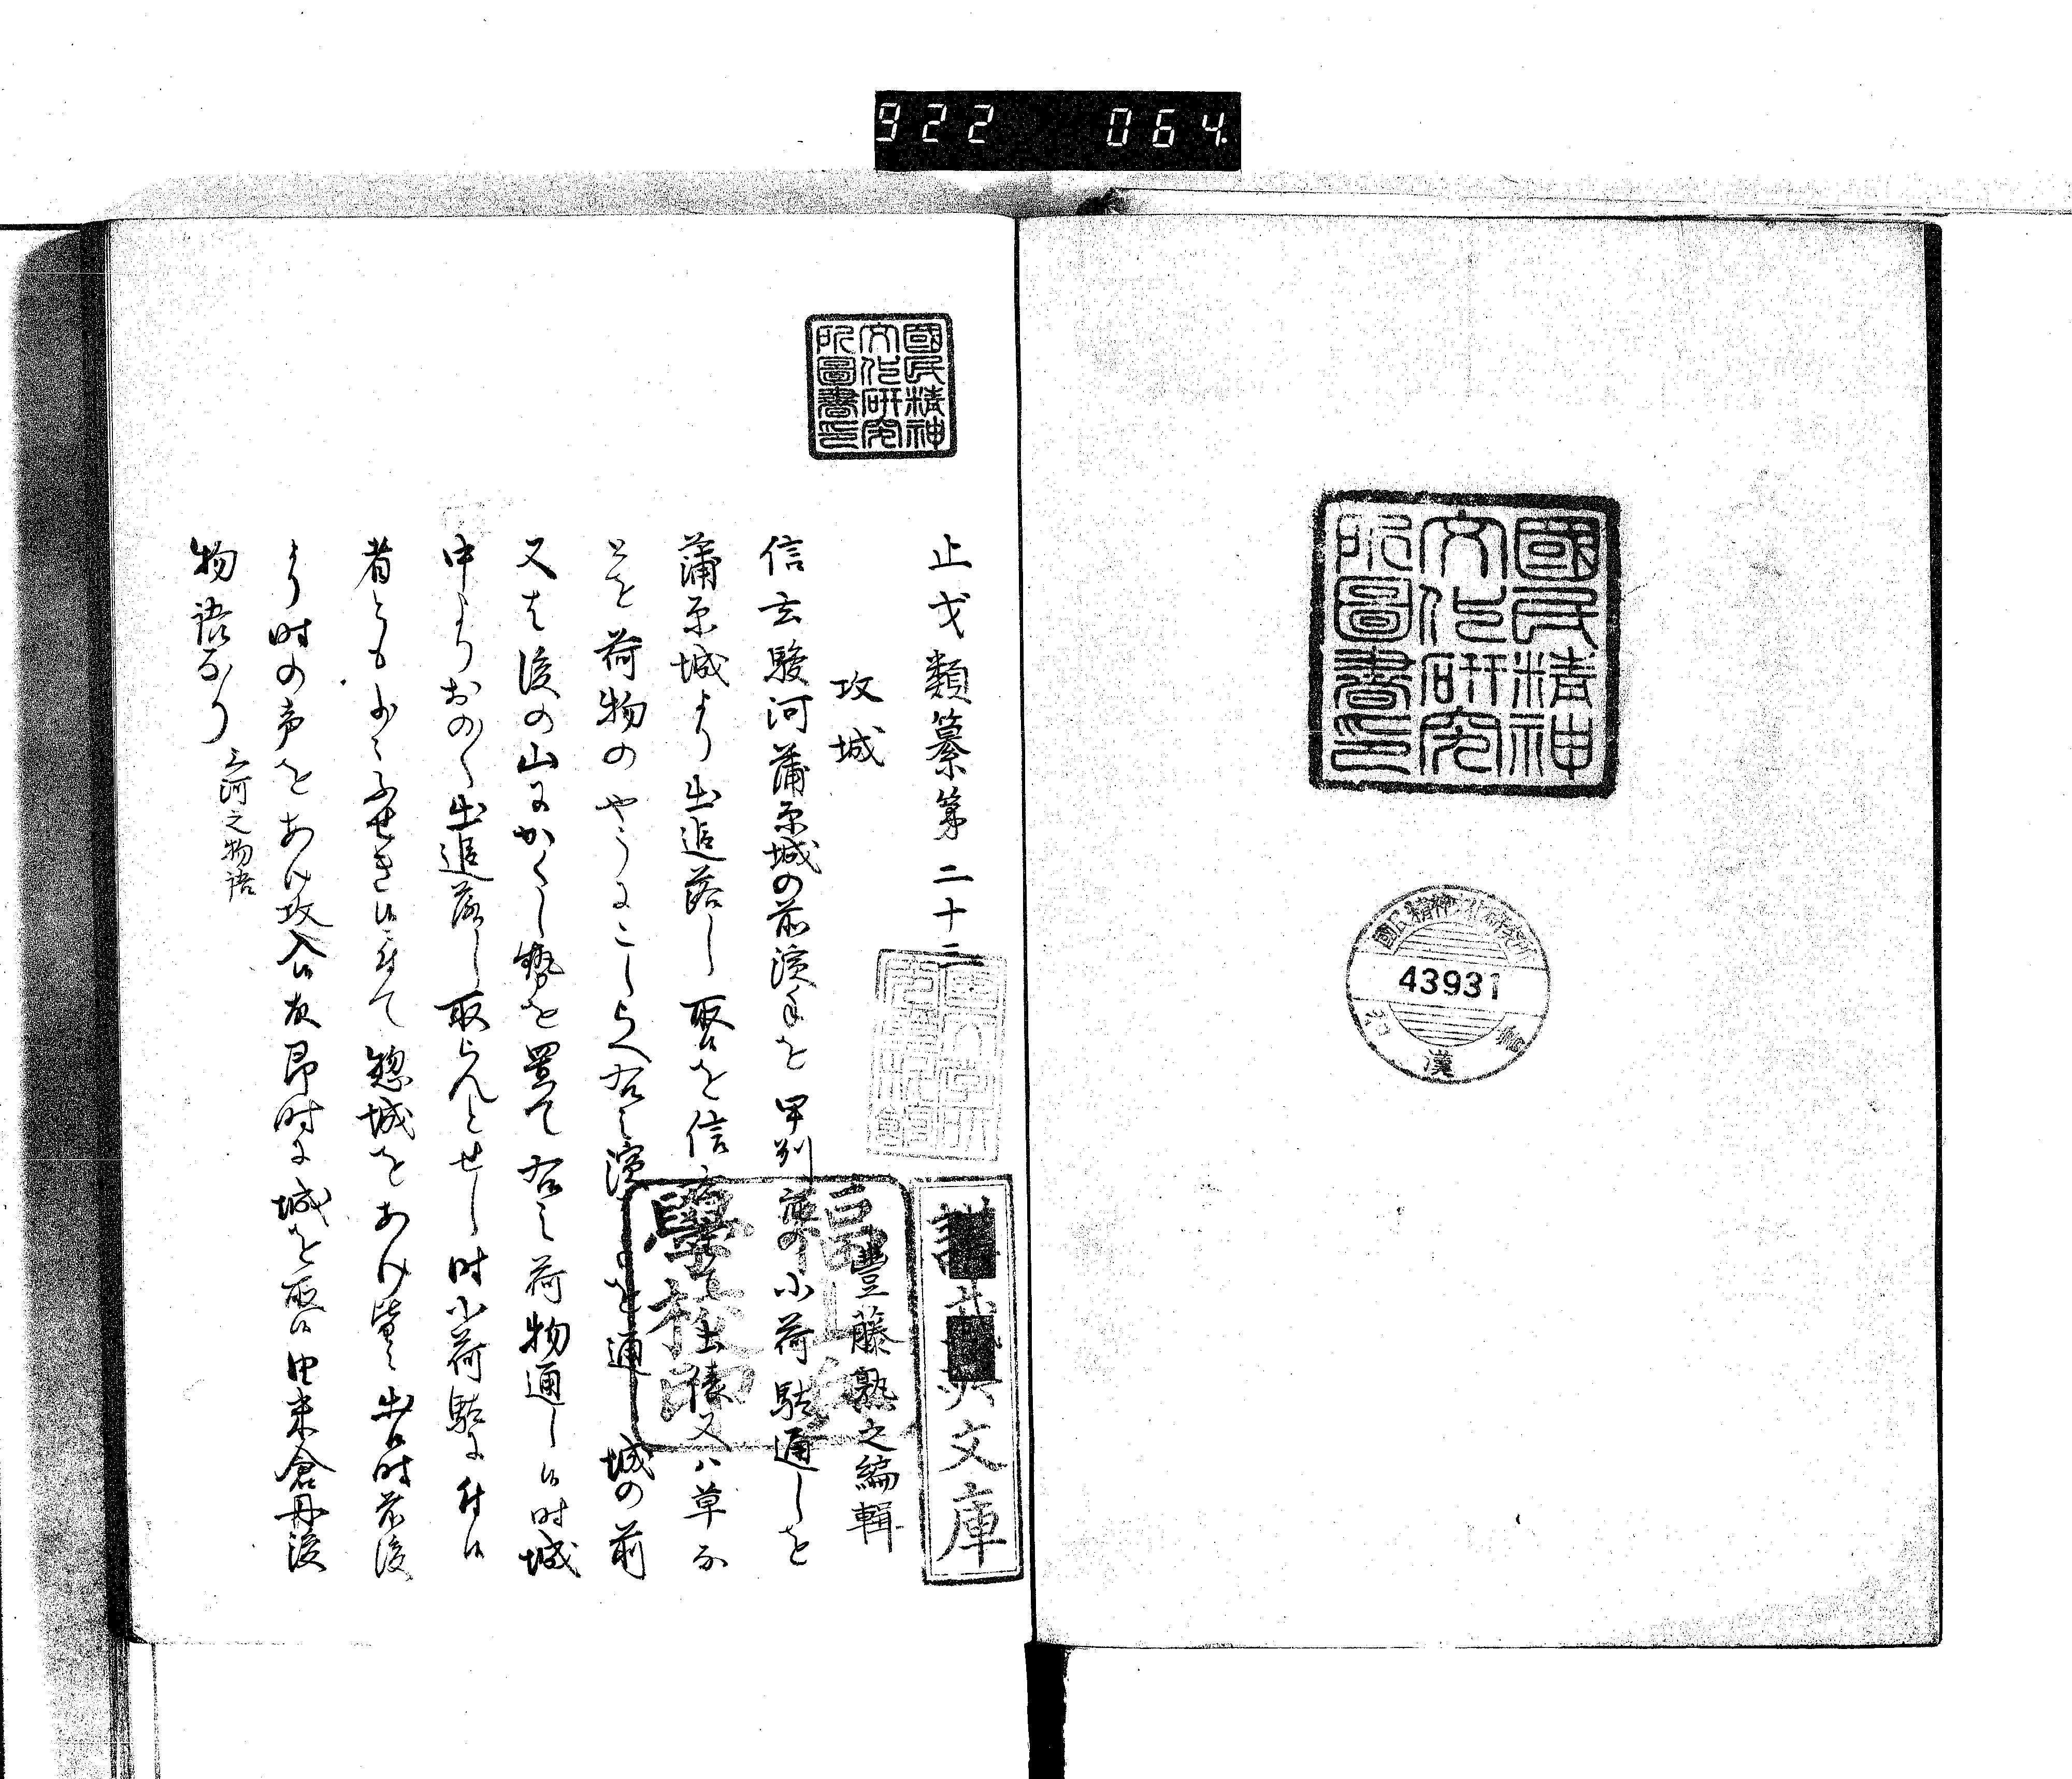 922 064
國民精神
文化研究
所圖書印
國民精神文化研究所
43931
漢
國民精神
文化研究
所圖書印
止戈類纂第二十二
文庫
豊藤熟之編輯
攻城
信玄駿河蒲原城の前濱手を甲列の小荷駄通しを
蒲原城より出追落し取を信玄又ハ草な
とを荷物のやうにこしらへ右之濱を通し城の前
又は後の山にかくし勢を置て右之荷物通し候時城
中よりおの〱出追落し取らんとせし時小荷駄に付候
者とも少〻ふせき候にて惣城をあけ皆〻出候時前後
より時の声をあけ攻入候故即時に城を取候由米倉丹後
物語なり 三河之物語
福山
學校